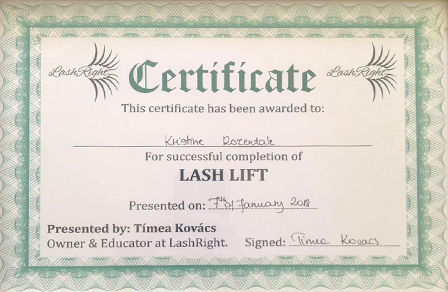 LashRight
Certificate
LashRight
This certificate has been awarded to:
Kristine Rozentale
For successful completion of
LASH LIFT
Presented on: 7th of January 2018
Presented by: Tímea Kovács
Owner & Educator at LashRight. Signed: Tímea Kovacs